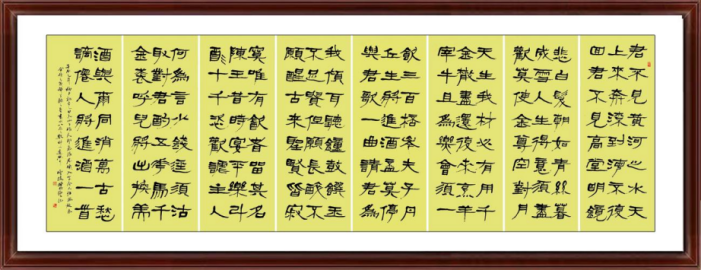 君不見黃河之水天
上來奔流到海不復
回君不見高堂明鏡
悲白髮朝如青絲暮
成雪人生得意須盡
歡莫使金樽空對月
天生我材必有用千
金散盡還復來烹羊
宰牛且為樂會須一
飲三百杯岑夫子丹
丘生將進酒君莫停
與君歌一曲請君為
我傾耳聽鐘鼓饌玉
不足貴但願長醉不
願醒古來聖賢皆寂
寞唯有飲者留其名
陳王昔時宴平樂斗
酒十千恣歡謔主人
何為言少錢徑須沽
取對君酌五花馬千
金裘呼兒將出換美
酒與爾同消萬古愁
謫僊人將進酒一首